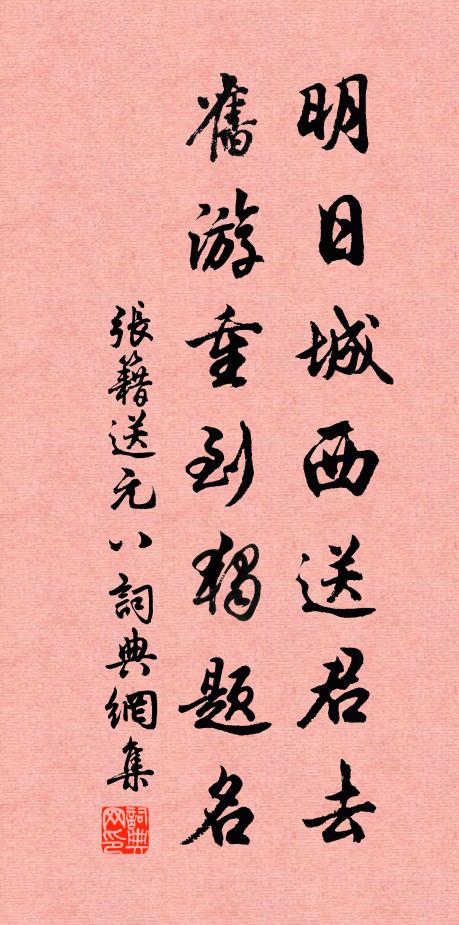 明日城西送君去
舊游重到獨題名
張籍送元八詞典網集
詞典网印